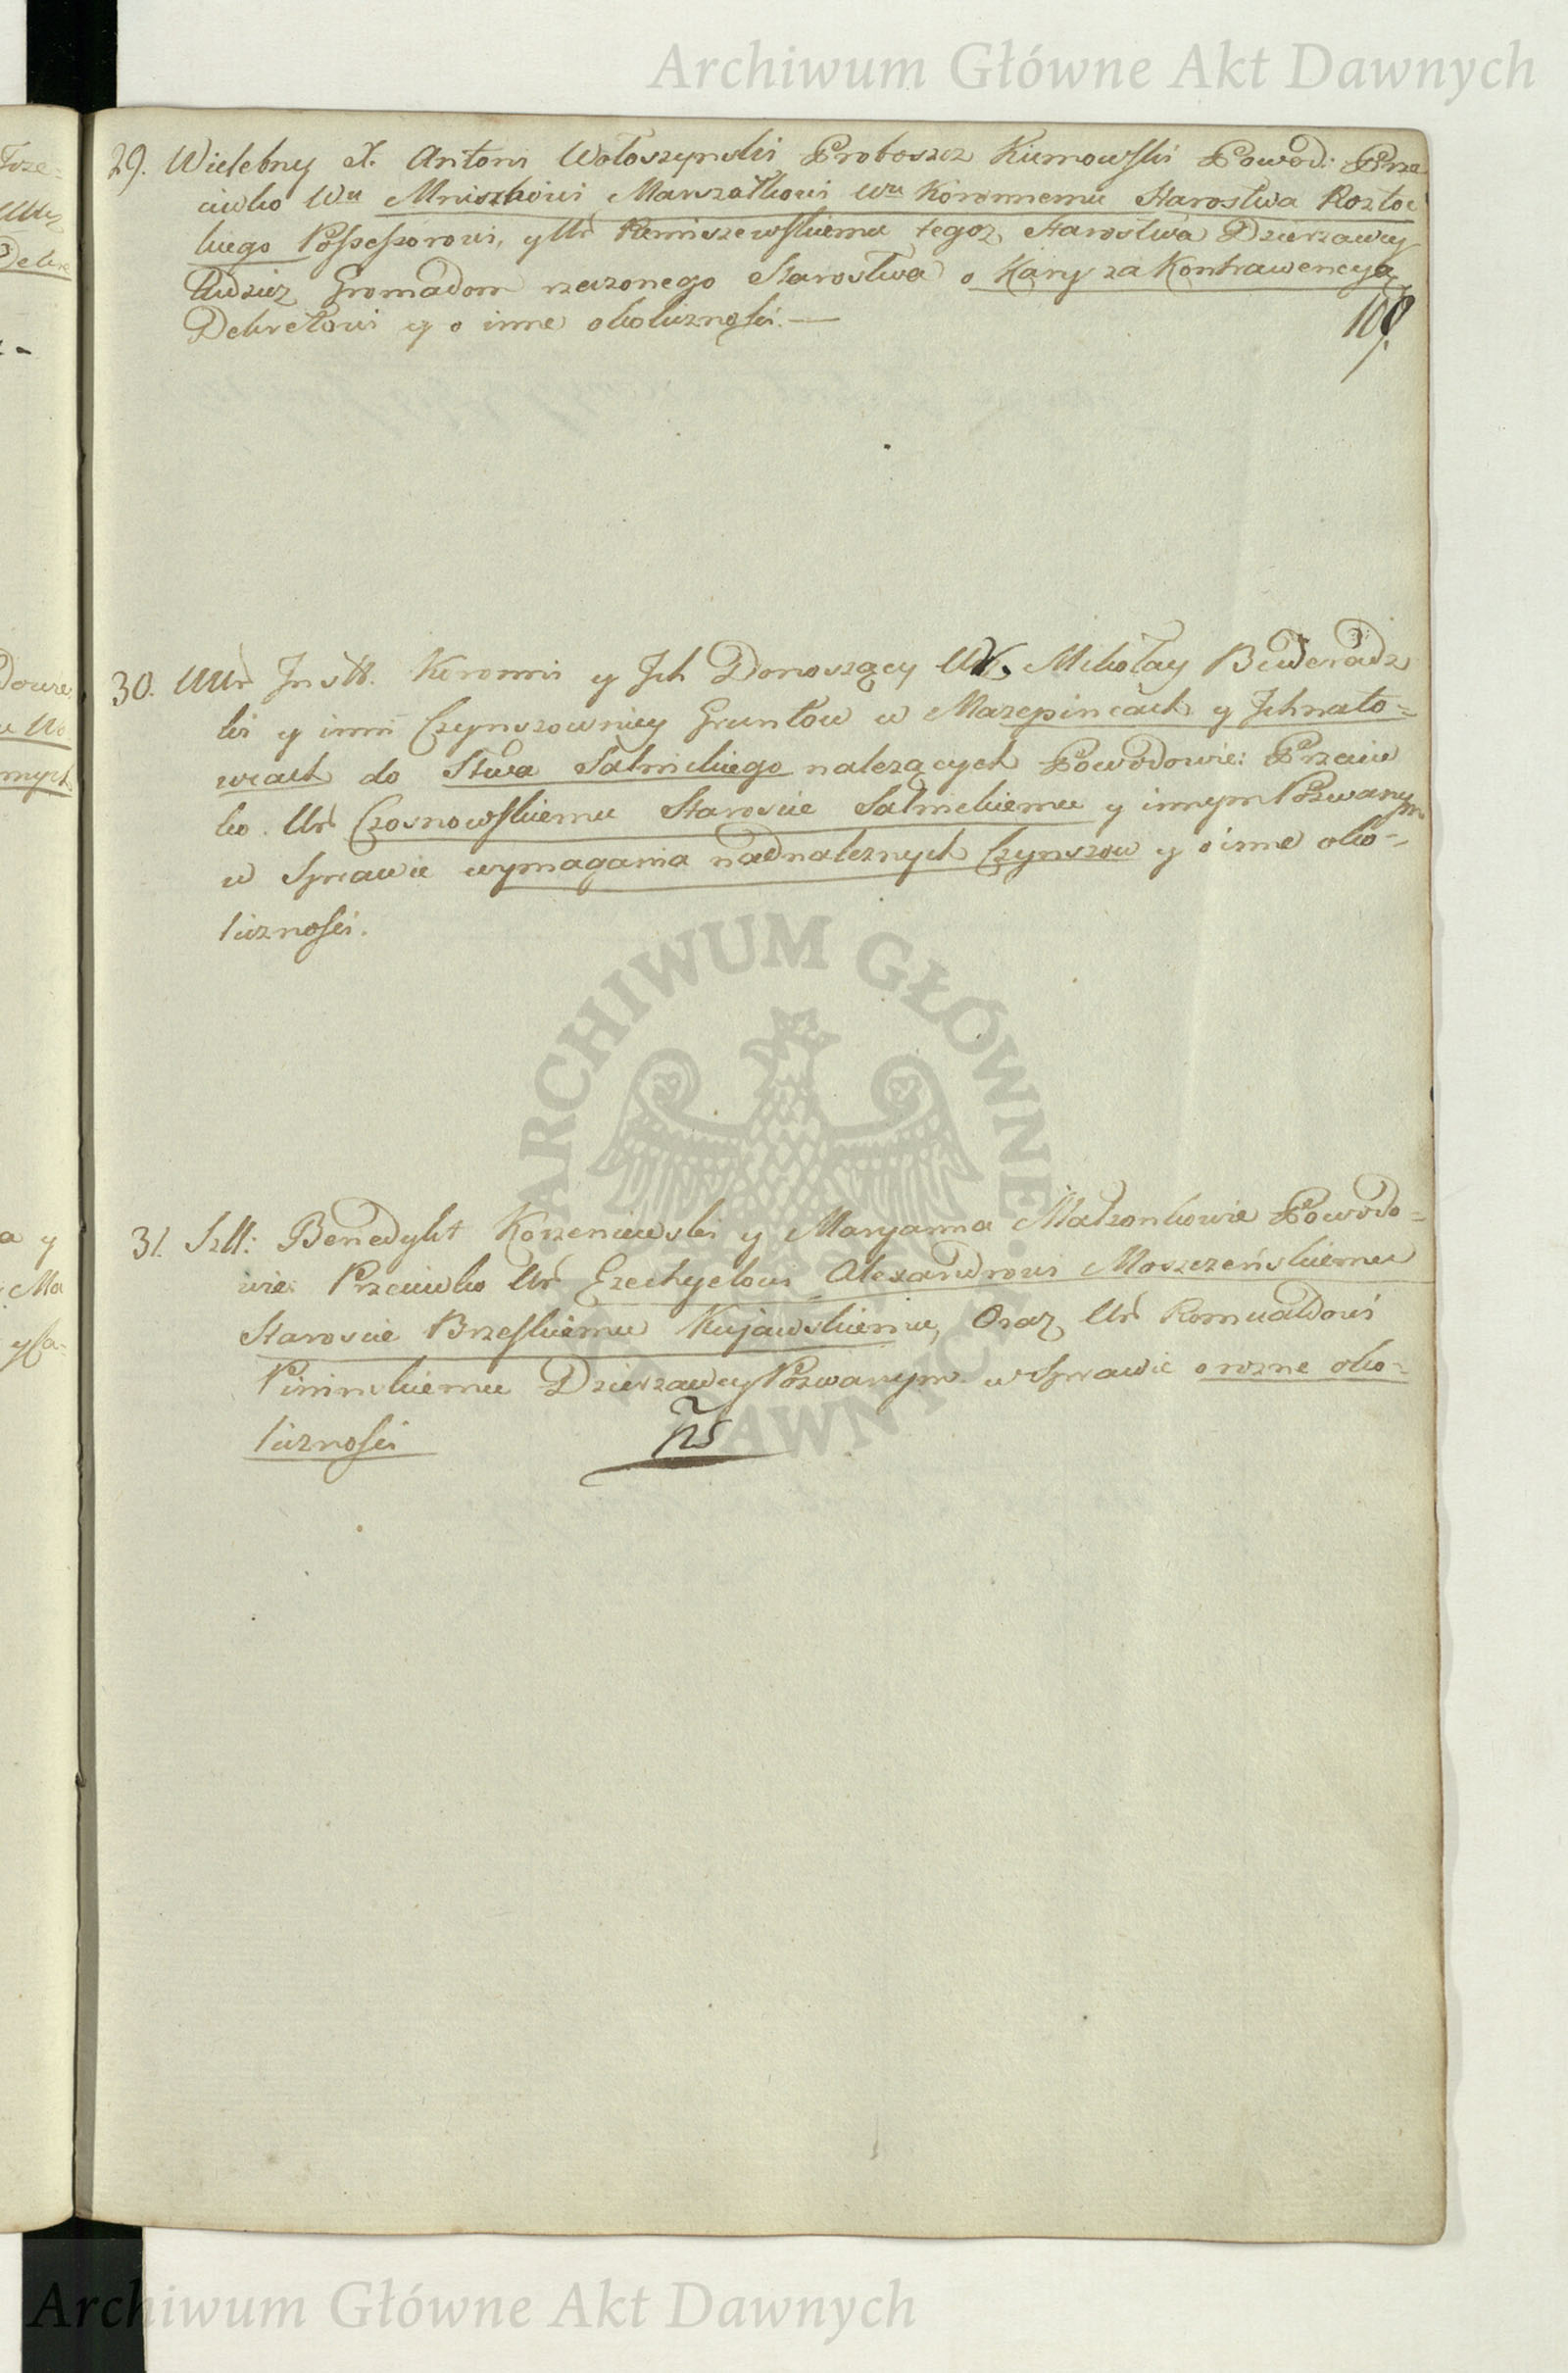 Archiwum Główne Akt Dawnych
29. Wielebny X. Antoni Wołoszynski Proboszcz Kumowski Powod: Prze
ciwko Wu Mniszkowi Marszałkowi Wu Koronnemu Starostwa Rozto
kiego Possessorowi, y Ur Remiszewskiemu tegoz Starostwa Dzierzawcy
tudziez Gromadom rzeczonego Starostwa o Kary za Kontrawencyą
Dekretowi y o inne okolicznosci.—
30. UUr Inst. Koronni y Ich Donoszący Mikołay
ki y inni Czynszownicy Gruntow w Mazepincach y Ichnato=
wcach do Stwa Salnickiego nalezących Powodowie: Przeciw
ko Ur Czosnowskiemu Staroscie Salnickiemu y innym Pozwanym
w Sprawie wymagania nadnaleznych Czynszow y o inne oko=
licznosci.
31. Szll: Benedykt Korzeniewski y Maryanna Małzonkowie Powodo=
wie: Przeciwko Ur Ezechyelowi Alexandrowi Moszczeńskiemu
Staroscie Brzeskiemu Kujawskiemu, Oraz Ur Romualdowi
Pininskiemu Dzierzawcy Pozwanym w Sprawie o rozne oko=
licznosci
ARCHIWUM GŁÓWNE
DAWNYCH
Archiwum Główne Akt Dawnych